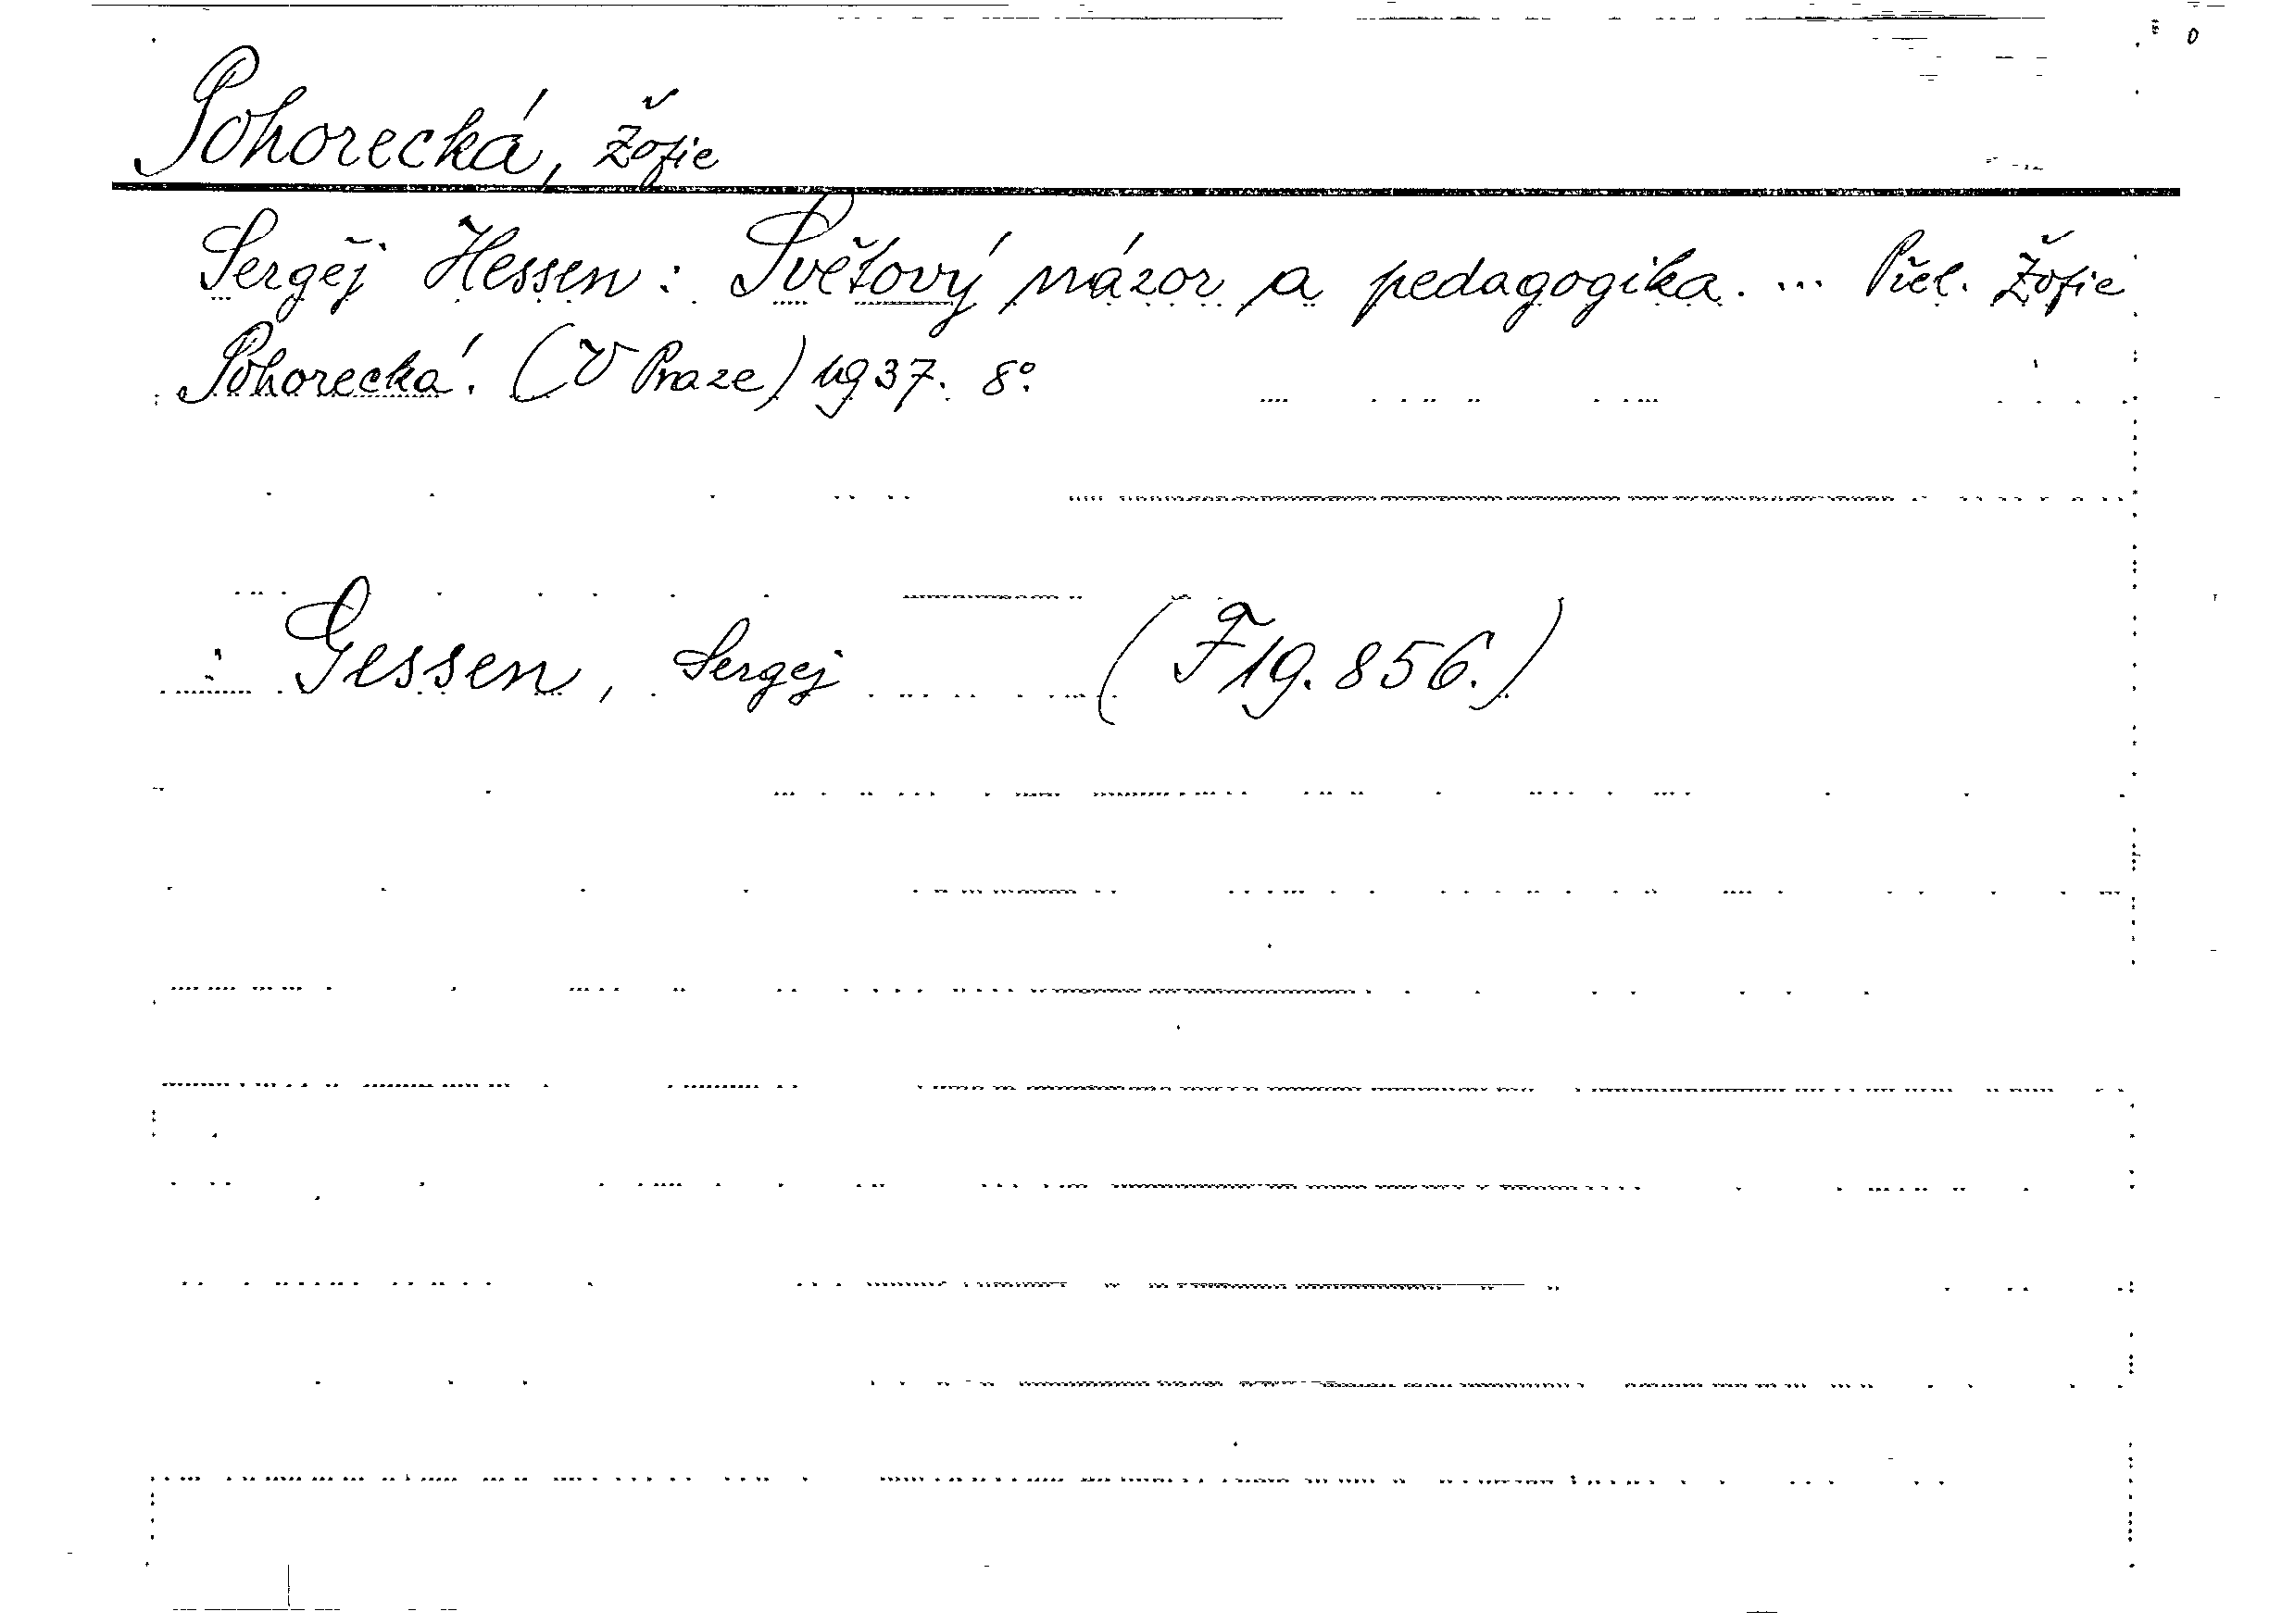 Pohorecká, Žofie
Sergěj Hessen: Světový názor a pedagogika. ... Přel. Žofie
Pohorecká. (V Praze) 1937. 8°.
: Gessen, Sergej (F 19.856.)